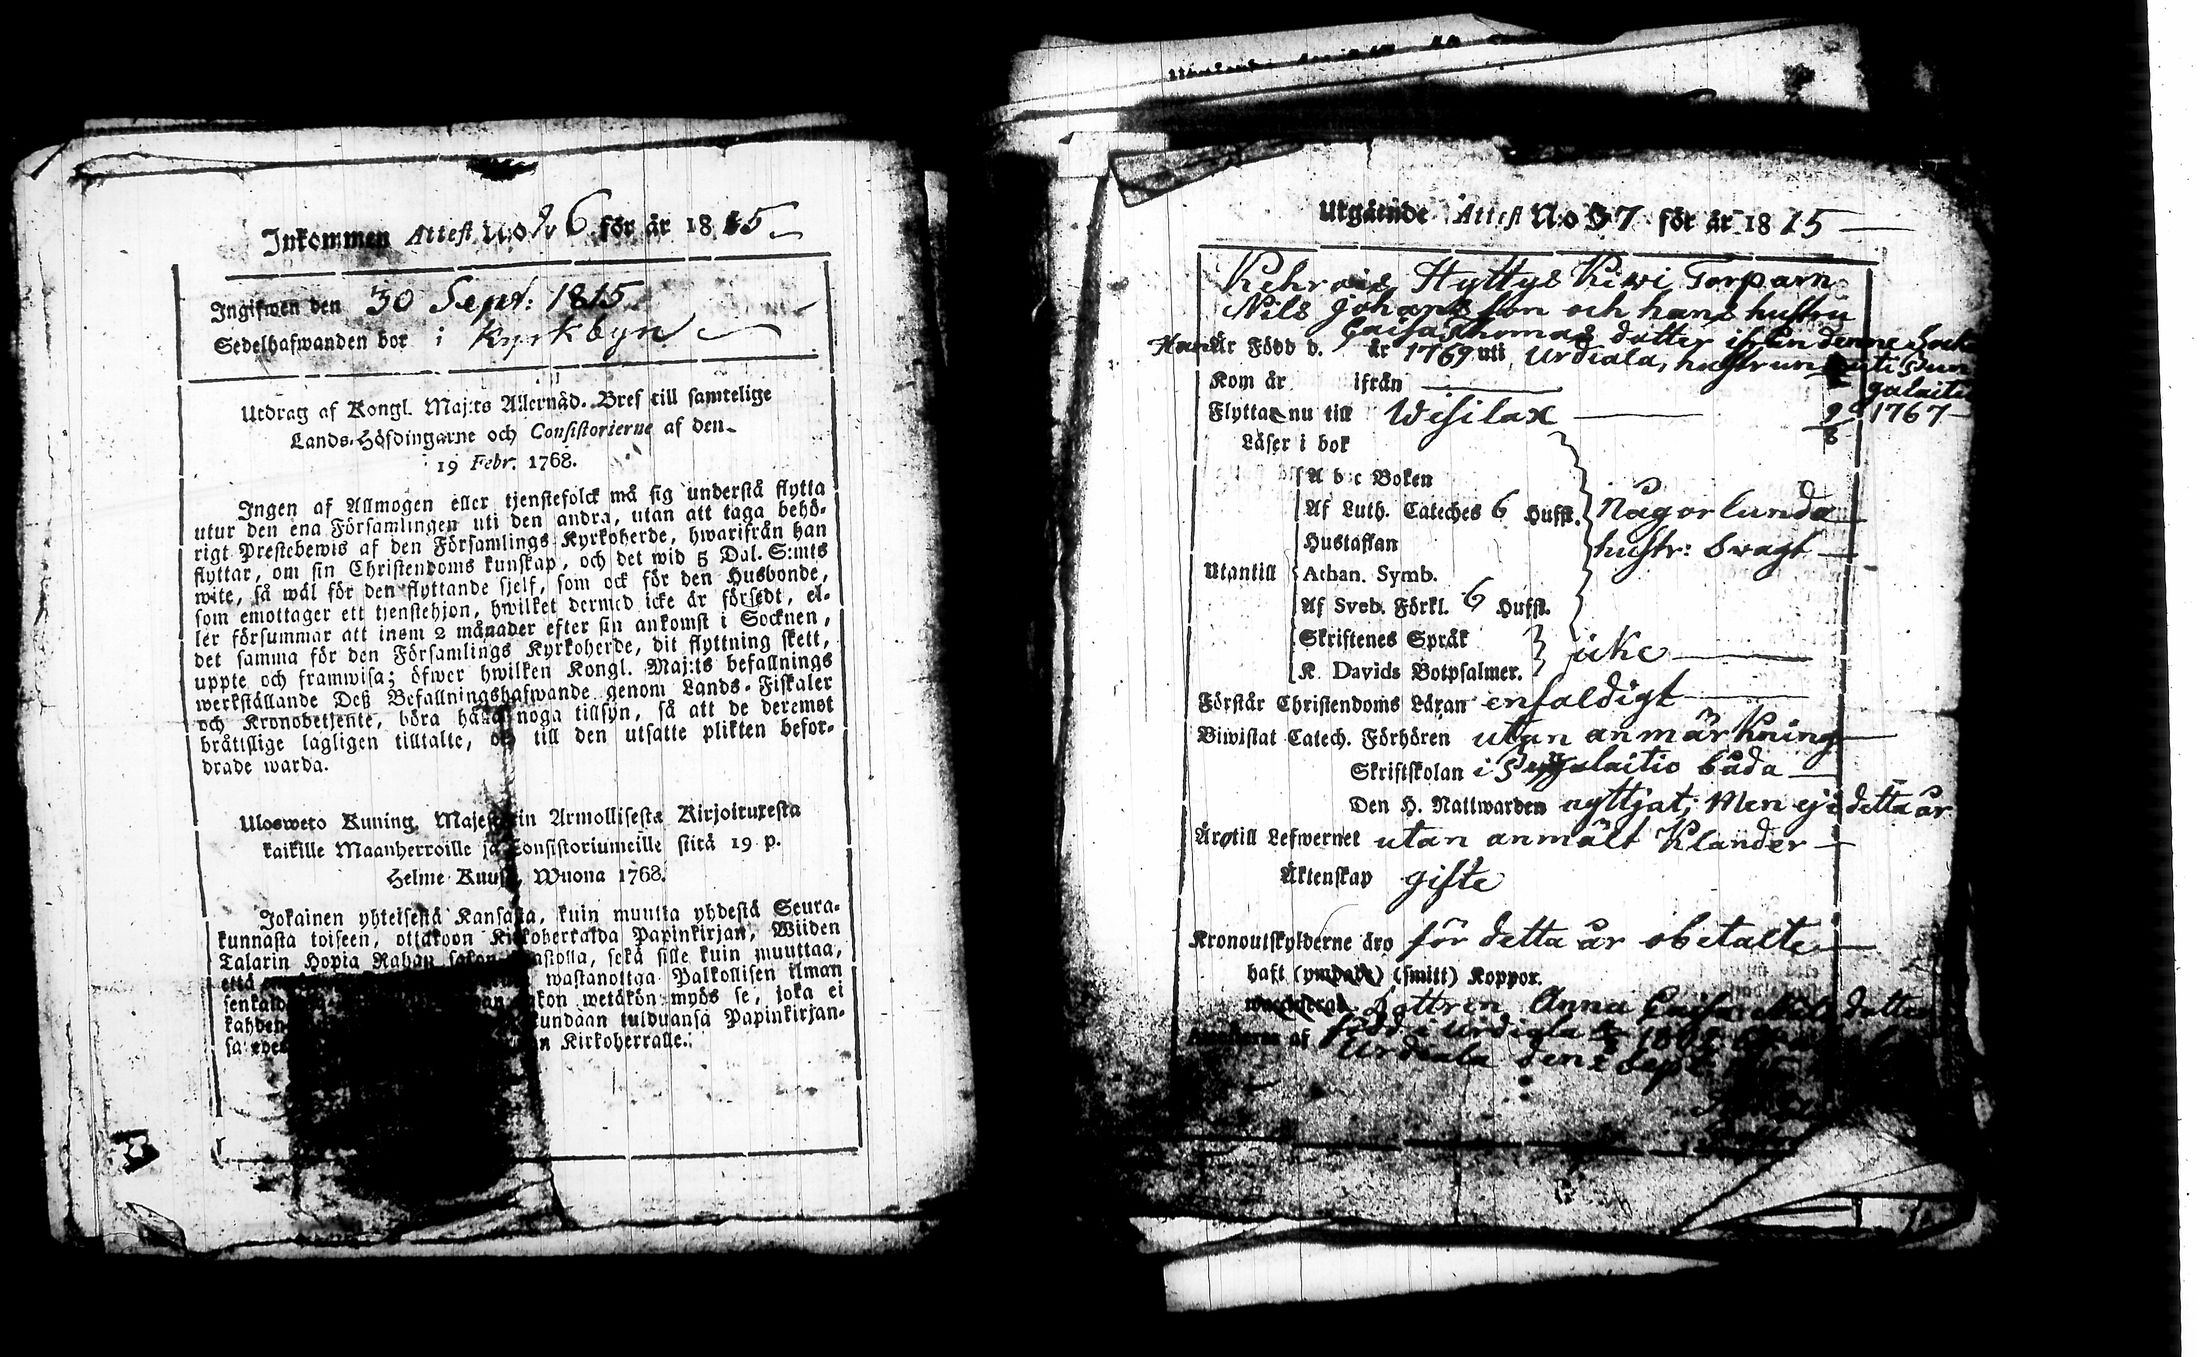 Inkommen Attest No 26 för år 1815
Ingifwen den 30 Sept: 1815
Sedelhafwanden bor i Kyrkbyn
Utdrag af Kongl. Maj:ts Allernåd. Bref till samtelige
Lands-Höfdingarne och Consistorierne af den
19 Febr. 1768.
Ingen af Allmogen eller tjenstefolck må sig understå flytta
utur den ena Församlingen uti den andra, utan att taga behö-
rigt Prestebewis af den Församlings Kyrkoherde, hwarifrån han
flyttar, om sin Christendoms kunskap, och det wid 5 Dal. S:mts
wite, så wäl för den flyttande sjelf, som ock för den Husbonde,
som emottager ett tjenstehjon, hwilket dermed icke är försedt, el-
ler försummar att inom 2 månader efter sin ankomst i Socknen,
det samma för den Församlings Kyrkoherde, dit flyttning skett,
uppte och framwisa; öfwer hwilken Kongl. Maj:ts befallnings
werkställande Deß Befallningshafwande genom Lands-Fiskaler
och Kronobetjente, böra hålla noga tillsyn, så att de deremot
bråtislige lagligen tilltalte, och till den utsatte plikten befor-
drade warda.
Ulosweto Kuning. Majestetin Armollisesta Kirjoituxesta
kaikille Maanherroille ja Consistoriumeille siitä 19 p.
Helme Kuusa, Wuona 1768.
Jokainen yhteisestä Kansasta, kuin muutta yhdestä Seura-
kunnasta toiseen, ottakoon Kirkoherralda Papinkirjan, Wiiden
Talarin Hopia Rahan sakon uhastolla, sekä sille kuin muuttaa,
että wastanottaa Palkollisen ilman
sakon wetäkön myös se, joka ei
kahden kundaan tulduansa Papinkirjan-
sa Kirkoherralle.
Utgående Attest No 37 för år 1815
Kehrois Hyttys Kiwi Torparn
Nils Johansson och hans hustru
Caisa Thomas dotter ifrån denne Sock
Han Är Född d. år 1769 uti Urdiala, hustrun uti Pun
galaitio
Kom år ifrån
Flyttar nu till Wisilax 9/8 1767
Läser i bok
A b c Boken
Af Luth. Cateches 6 Hufst. Någorlunda
Hustaflan hustr: swagt
Utantill Athan. Symb.
Af Sveb. Förkl. 6 Hufst.
Skriftenes Språk
icke
K. Davids Botpsalmer.
Förstår Christendoms Läran enfaldigt
Biwistat Catech. Förhören utan anmärkning
Skriftskolan i båda
Den H. Nattwarden nyttjat; Men ej i detta år
Äro till Lefwernet utan anmält Klander
Äktenskap gifte
Kronoutskylderne äro för detta år obetalte
haft (smitt) Koppor.
Dottren Anna Caisa Nils dotter
född i Urdiala
Urdiala den 2 Sept